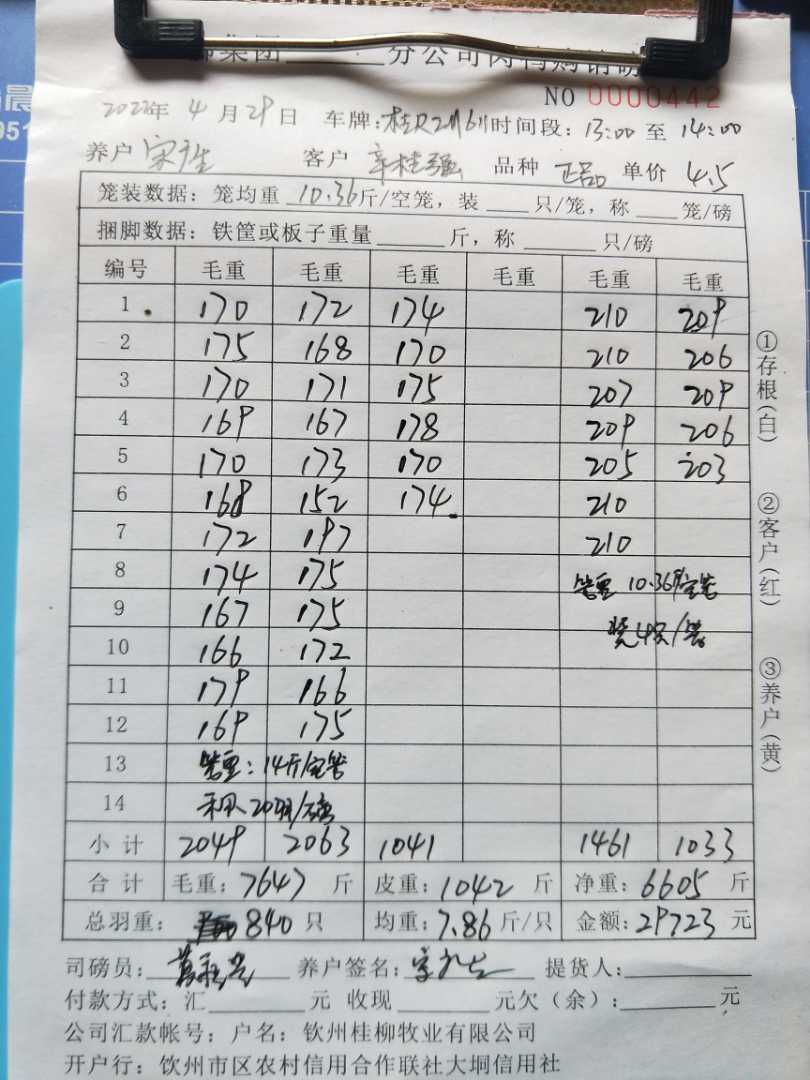 集团______分公司肉鸭购销
NO 0000442
2022年 4月29日 车牌: 时间段: 13:00 至 14:00
养户 宋 客户 辛桂强 品种 正品 单价 4.5
笼装数据: 笼均重 10.36斤/空笼, 装____只/笼, 称____笼/磅
捆脚数据: 铁筐或板子重量______斤, 称______只/磅
编号 毛重 毛重 毛重 毛重 毛重 毛重
1 170 172 174 210 209
2 175 168 170 210 206
3 170 171 175 207 209
4 169 167 178 209 206
5 170 173 170 205 203
6 168 152 174 210
7 172 197 210
8 174 175 10.36
9 167 175
10 166 172
11 179 166
12 169 175
13 : 14斤/空
14 20
小计 2049 2063 1041 1461 1033
合计 毛重: 7647 斤 皮重: 1042 斤 净重: 6605 斤
总羽重: 840 只 均重: 7.86 斤/只 金额: 29723 元
司磅员: 养户签名: 提货人:
付款方式: 汇______元 收现______元欠(余): ______元
公司汇款帐号: 户名: 钦州桂柳牧业有限公司
开户行: 钦州市区农村信用合作联社大垌信用社
①存根(白)
②客户(红)
③养户(黄)